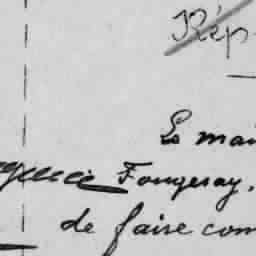 Rép
Le mai
Fougeray,
de faire com